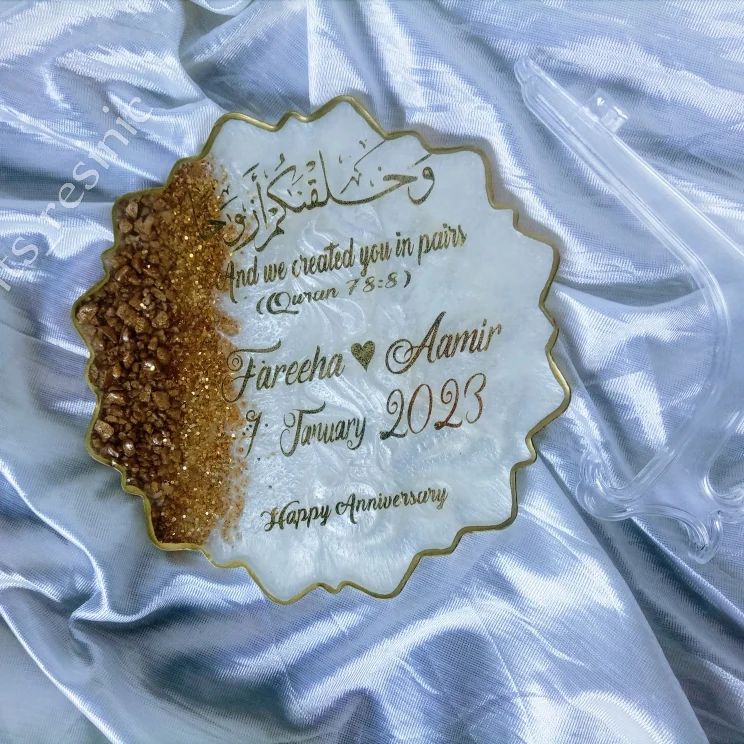 وَخَلَقْنَكُمْ أَزْوَجًا
And we created you in pairs
(Quran 78:8)
Fareeha ♥ Aamir
7 January 2023
Happy Anniversary
rts_resinic